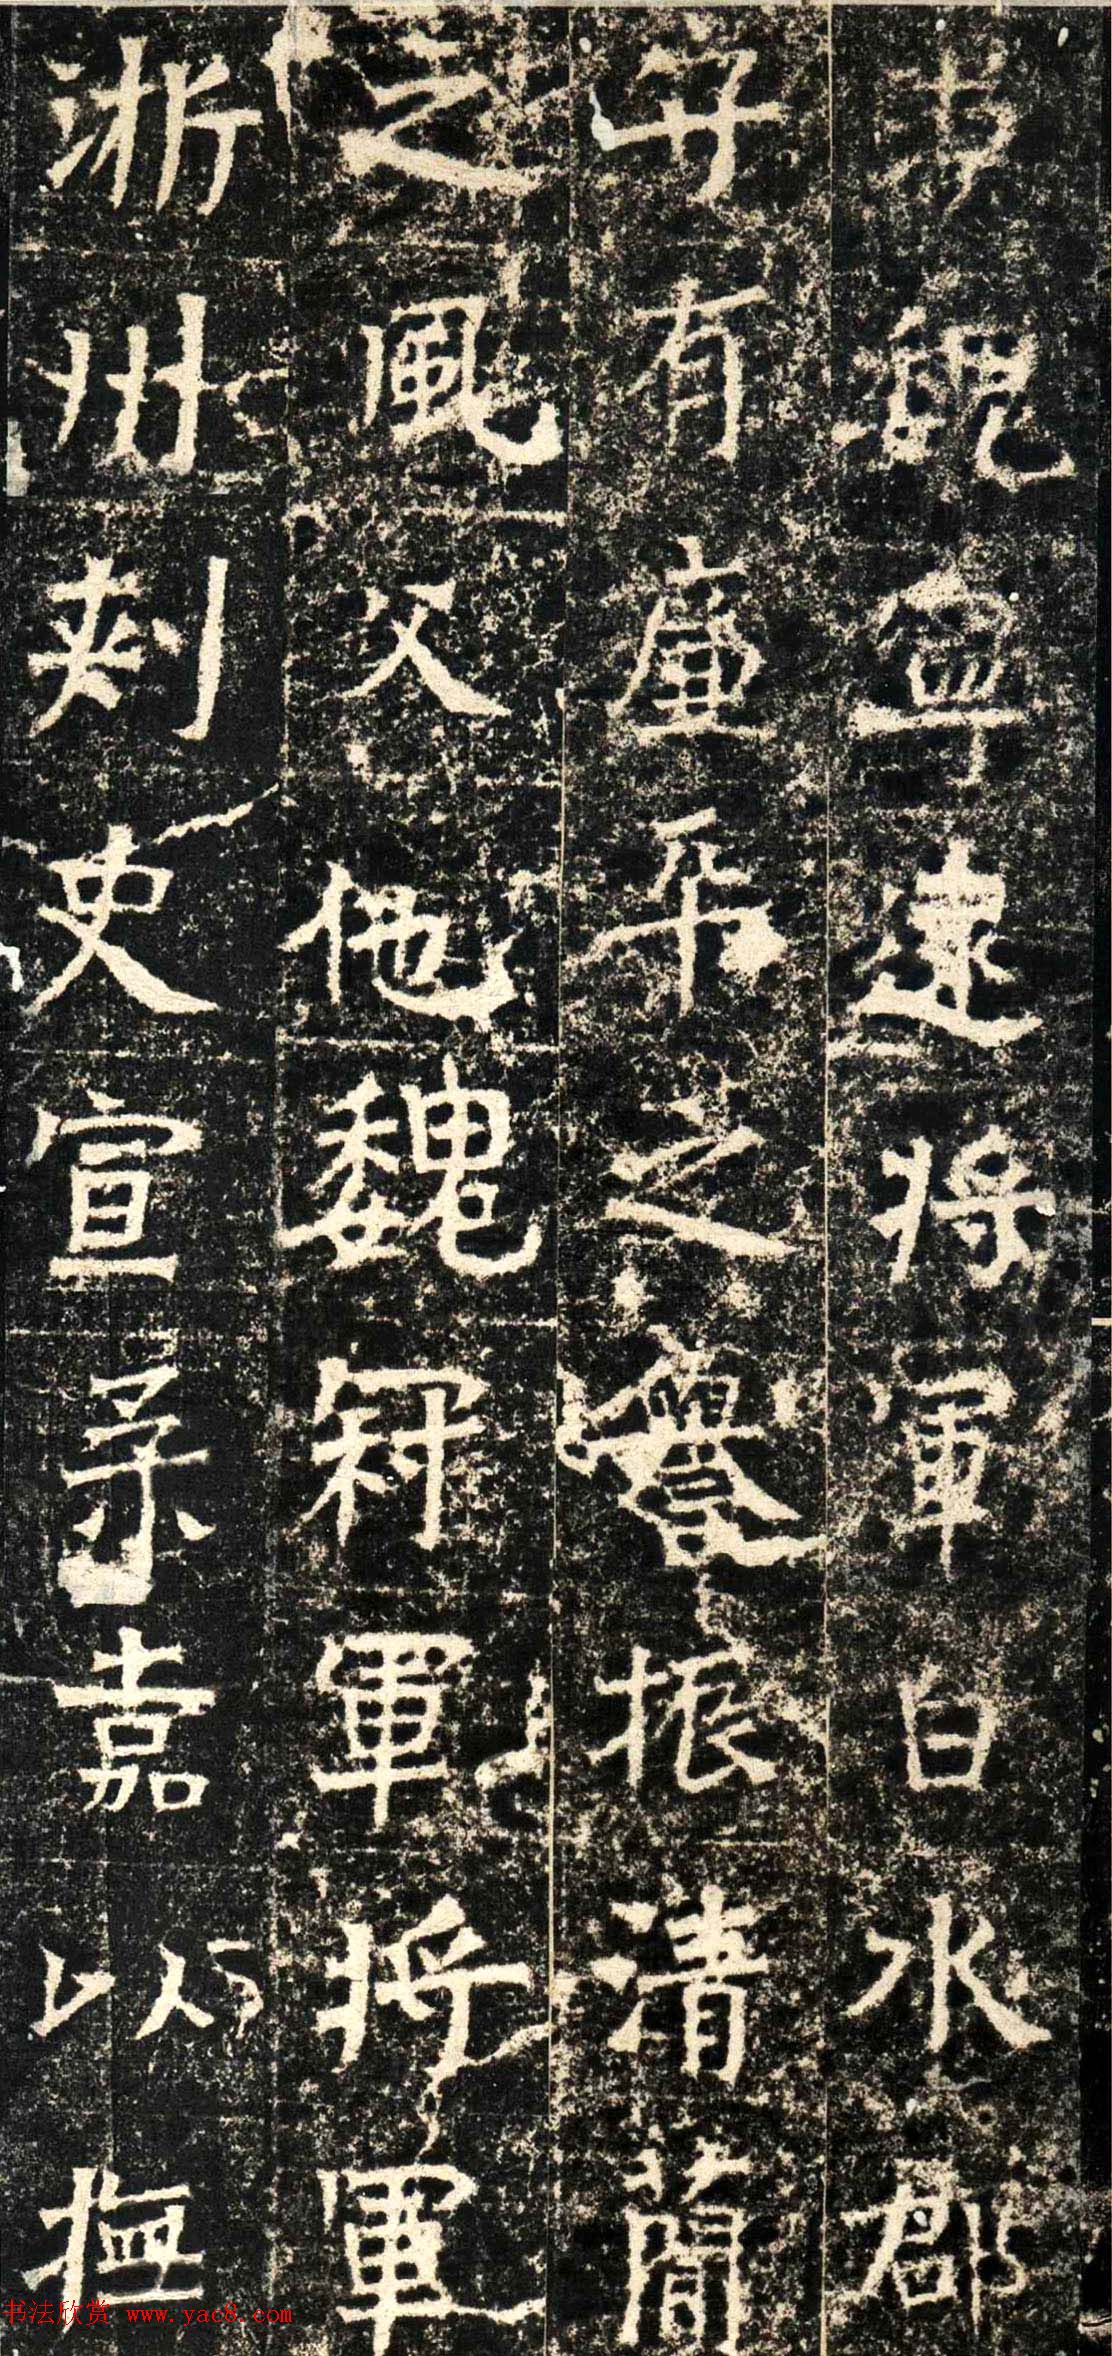 史魏寧遠將軍白水郡
守有廉平之譽振清蕳
之風父他魏冠軍將軍
淅州刺史宣条嘉以撫
书法欣赏 www.yac8.com